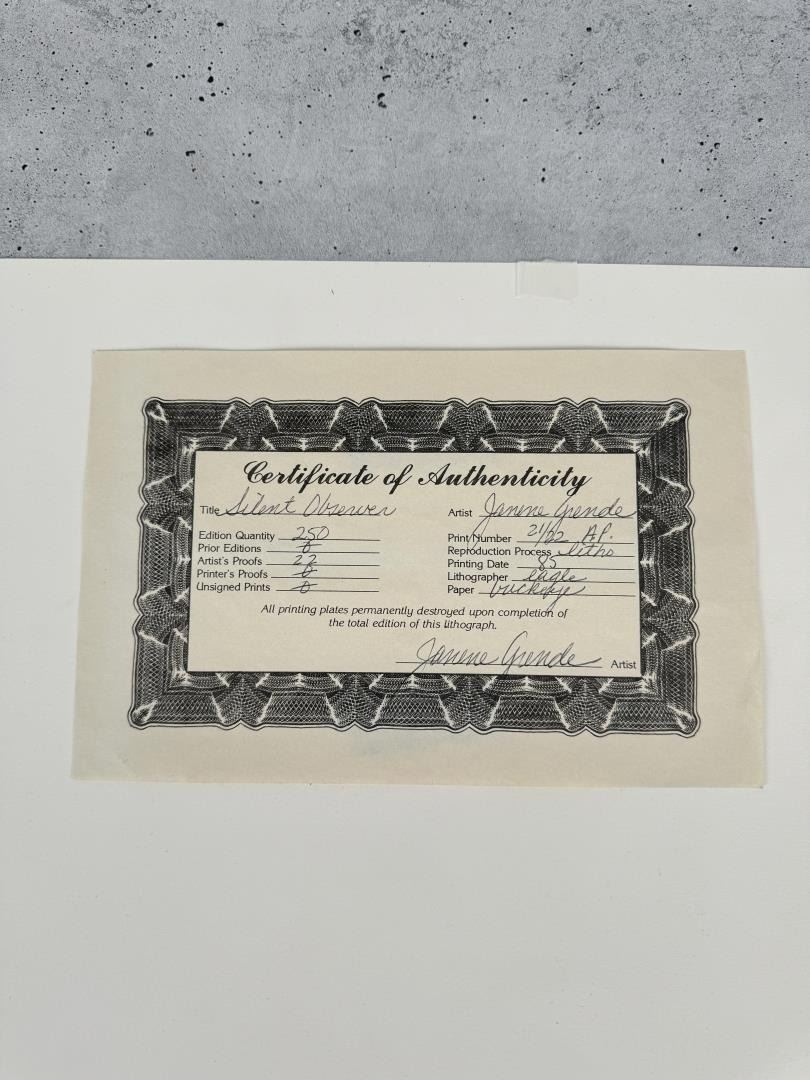 Certificate of Authenticity
Title Silent Observer
Artist Janene Grende
Edition Quantity 250
Prior Editions 0
Artist's Proofs 22
Printer's Proofs 0
Unsigned Prints 0
Print Number 21/22 A.P.
Reproduction Process litho
Printing Date 85
Lithographer eagle
Paper buckeye
All printing plates permanently destroyed upon completion of
the total edition of this lithograph.
Janene Grende Artist